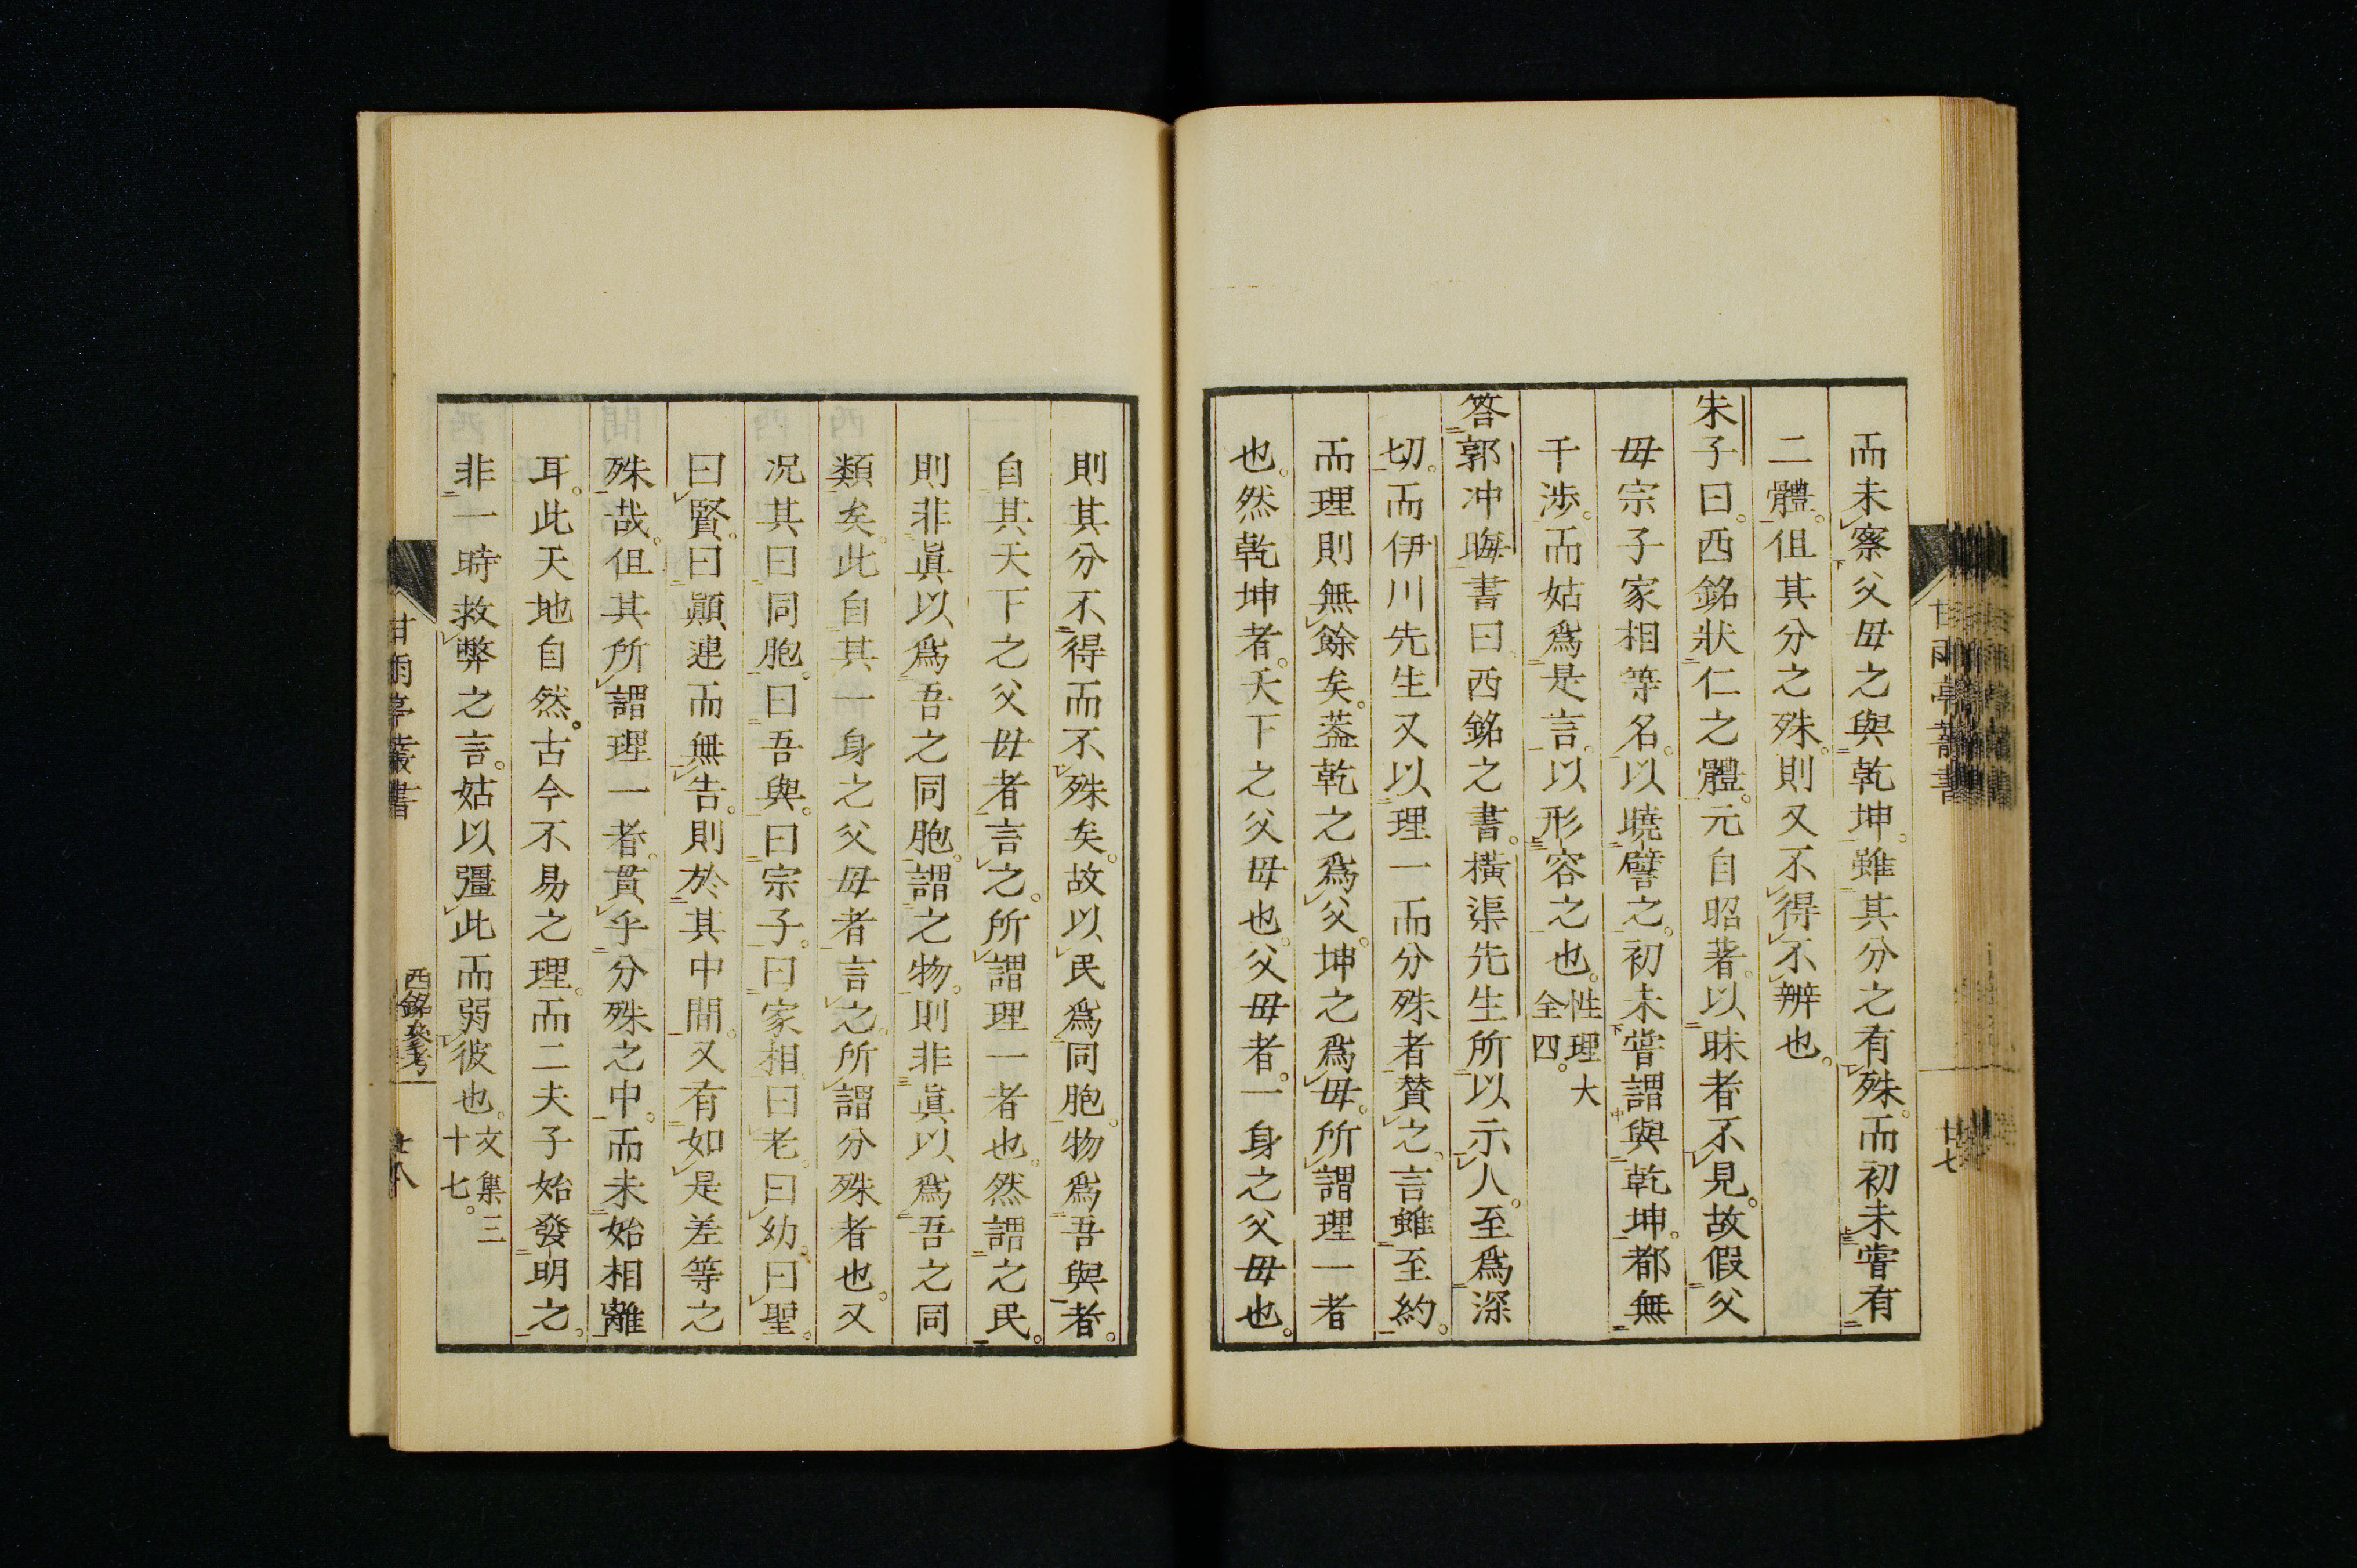 而未察父母之與乾坤。雖其分之有殊。而初未嘗有
二體。但其分之殊。則又不得不辨也。
朱子曰。西銘狀仁之體。元自昭著。以昧者不見。故假父
母宗子家相等名。以曉譬之。初未嘗謂與乾坤。都無
干涉。而姑爲是言。以形容之也。性理大
全四。
答郭冲晦書曰西銘之書。橫渠先生所以示人。至爲深
切。而伊川先生又以理一而分殊者贊之。言雖至約。
而理則無餘矣。蓋乾之爲父。坤之爲母。所謂理一者
也。然乾坤者。天下之父母也。父母者。一身之父母也。
甘雨亭叢書
廿七
則其分不得而不殊矣。故以民爲同胞。物爲吾與者。
自其天下之父母者言之。所謂理一者也。然謂之民。
則非眞以爲吾之同胞。謂之物。則非眞以爲吾之同
類矣。此自其一身之父母者言之。所謂分殊者也。又
况其曰同胞。曰吾與。曰宗子。曰家相。曰老。曰幼。曰聖。
曰賢。曰顚連而無告。則於其中間。又有如是差等之
殊哉。但其所謂理一者。貫乎分殊之中。而未始相離
耳。此天地自然。古今不易之理。而二夫子始發明之。
非一時救弊之言。姑以彊此而弱彼也。文集三
十七。
甘雨亭叢書
西銘參考
廿八